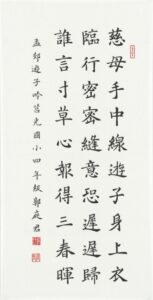 慈母手中線遊子身上衣
臨行密密縫意恐遲遲歸
誰言寸草心報得三春暉
孟郊遊子吟莒光國小四年級鄭庭君